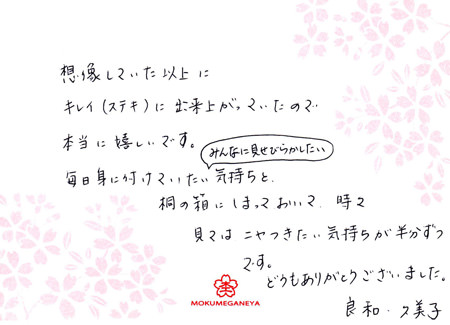 想像していた以上に
キレイ(ステキ)に出来上がっていたので
本当に嬉しいです。
みんなに見せびらかしたい
毎日身に付けていたい気持ちと、
桐の箱にしまっておいて、時々
見ては ニヤつきたい気持ちが半分ずつ
です。
どうもありがとうございました。
良和・久美子
MOKUMEGANEYA